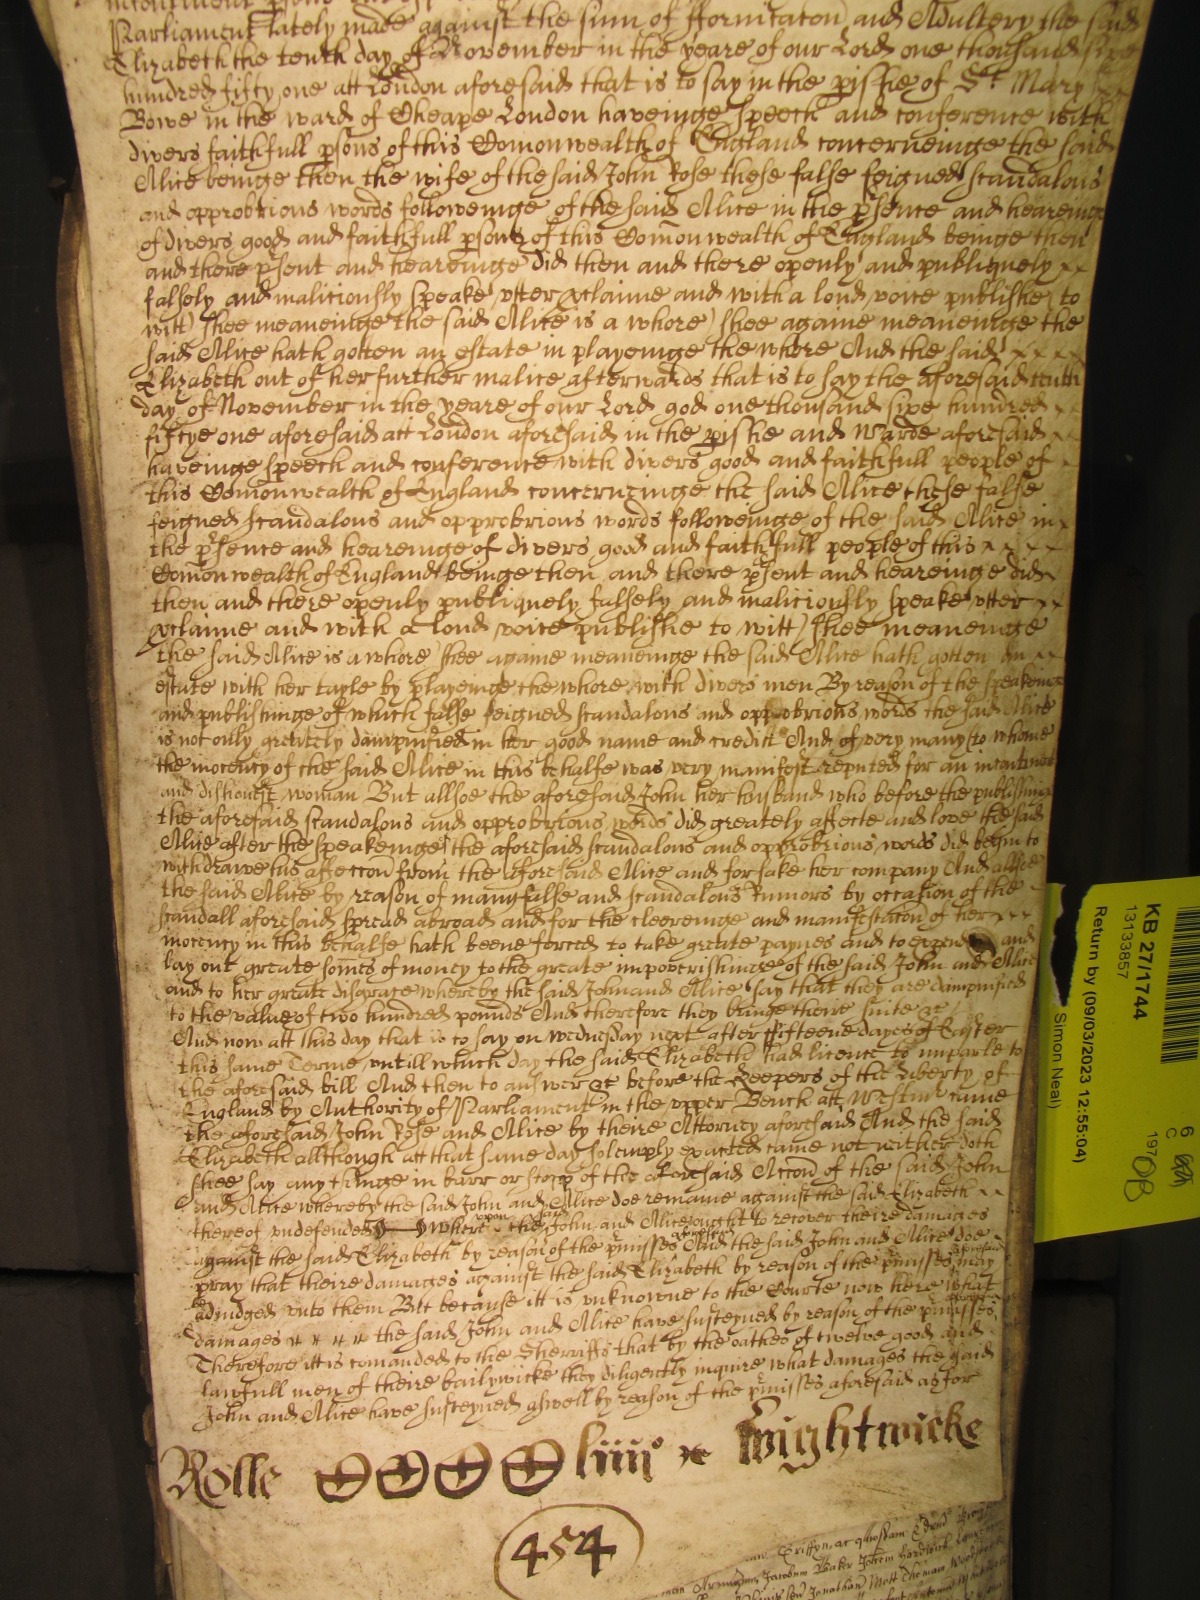 Parliament lately made against the sinn of fforniacaton and Adultery the said
Elizabeth the tenth day of November in the yeare of our Lord one thousand sixe
hundred fifty one att London aforesaid that is to say in the pishe of St. Mary
Bowe in the ward of Cheape London haveinge speech and conference with
divers faithfull psons of this Comonwealth of England concerneinge the said
Alice beinge then the wife of the said John Rose these false feigned scandalous
and opprobrious words followeinge of the said Alice in the psence and heareinge
of divers good and faithfull psons of this Comonwealth of England beinge then
and there psent and heareinge did then and there openly and publiquely
falsely and maliciously speake utter exclaime and with a loud voice publishe to
witt) shee meaneinge the said Alice is a whore) shee againe meaneinge the
said Alice hath gotten an estate in playeinge the whore And the said
Elizabeth out of her further malice afterwards that is to say the aforesaid tenth
day of November in the yeare of our Lord god one thousand sixe hundred
fiftye one aforesaid att London aforesaid in the pishe and Warde aforesaid
haveinge speech and conference with divers good and faithfull people of
this Comonwealth of England concerneinge the said Alice these false
feigned scandalous and opprobrious words followeinge of the said Alice in
the psence and heareinge of divers good and faithfull people of this
Comonwealth of England beinge then and there psent and heareinge did
then and there openly publiquely falsely and maliciously speake utter
exclaime and with a loud voice publishe to witt) shee meaneinge
the said Alice is a whore shee againe meaneinge the said Alice hath gotten an
estate with her tayle by playeinge the whore with divers men By reason of the speakeinge
and publishinge of which false feigned scandalous and opprobrious words the said Alice
is not only greately dampnified in her good name and credict And of very many to whome
the inocency of the said Alice in this behalfe was very manifest reputed for an incontinent
and dishonest woman But allsoe the aforesaid John her husband who before the publishinge
the aforesaid scandalous and opprobrious words did greately affecte and love the said
Alice after the speakeinge the aforesaid scandalous and opprobrious words did begin to
withdrawe his affeccon from the aforesaid Alice and forsake her company And allsoe
the said Alice by reason of many false and scandalous Rumors by occasion of the
scandall aforesaid spread abroad and for the cleereinge and manifestacon of her
inocency in this behalfe hath beene forced to take greate paynes and to expend and
lay out greate somes of money to the greate impoverishinge of the said John and Alice
and to her greate disgrace whereby the said John and Alice say that they are dampnified
to the value of two hundred pounds And therefore they bringe theire suite &c
And now att this day that is to say on Wednesday next after ffifteene dayes of Easter
this same Terme untill which day the said Elizabeth had licence to imparle to
the aforesaid bill And then to answer &c before the Keepers of the liberty of
England by Authority of Parliament in the upper Bench att Westm came
the aforesaid John Rose and Alice by theire Attorney aforesaid And the said
Elizabeth allthough att that same day solemply exacted came not neither doth
shee say any thinge in barr or stopp of the aforesaid Accon of the said John
and Alice whereby the said John and Alice doe remaine against the said Elizabeth
thereof undefended whereupon the said John and Alice ought to recover theire damages
against the said Elizabeth by reason of the pmisses aforesaid And the said John and Alice doe
pray that theire damages against the said Elizabeth by reason of the pmisses aforesaid may
be adiudged unto them But because itt is unknowne to the Courte now here what
damages the said John and Alice have susteyned by reason of the pmisses aforesaid
Therefore itt is comanded to the Sherriffs that by the oathes of twelve good and
lawfull men of theire bailywicke they diligently inquire what damages the said
John and Alice have susteyned aswell by reason of the pmisses aforesaid as for
Rolle CCCC liiiio Wightwicke
454
Griffyn, ac quosdam
Jacobum Baker
Jonathan Mott Thomam
KB 27/1744
13133857
Return by (09/03/2023 12:55:04)
Simon Neal)
6
C
197